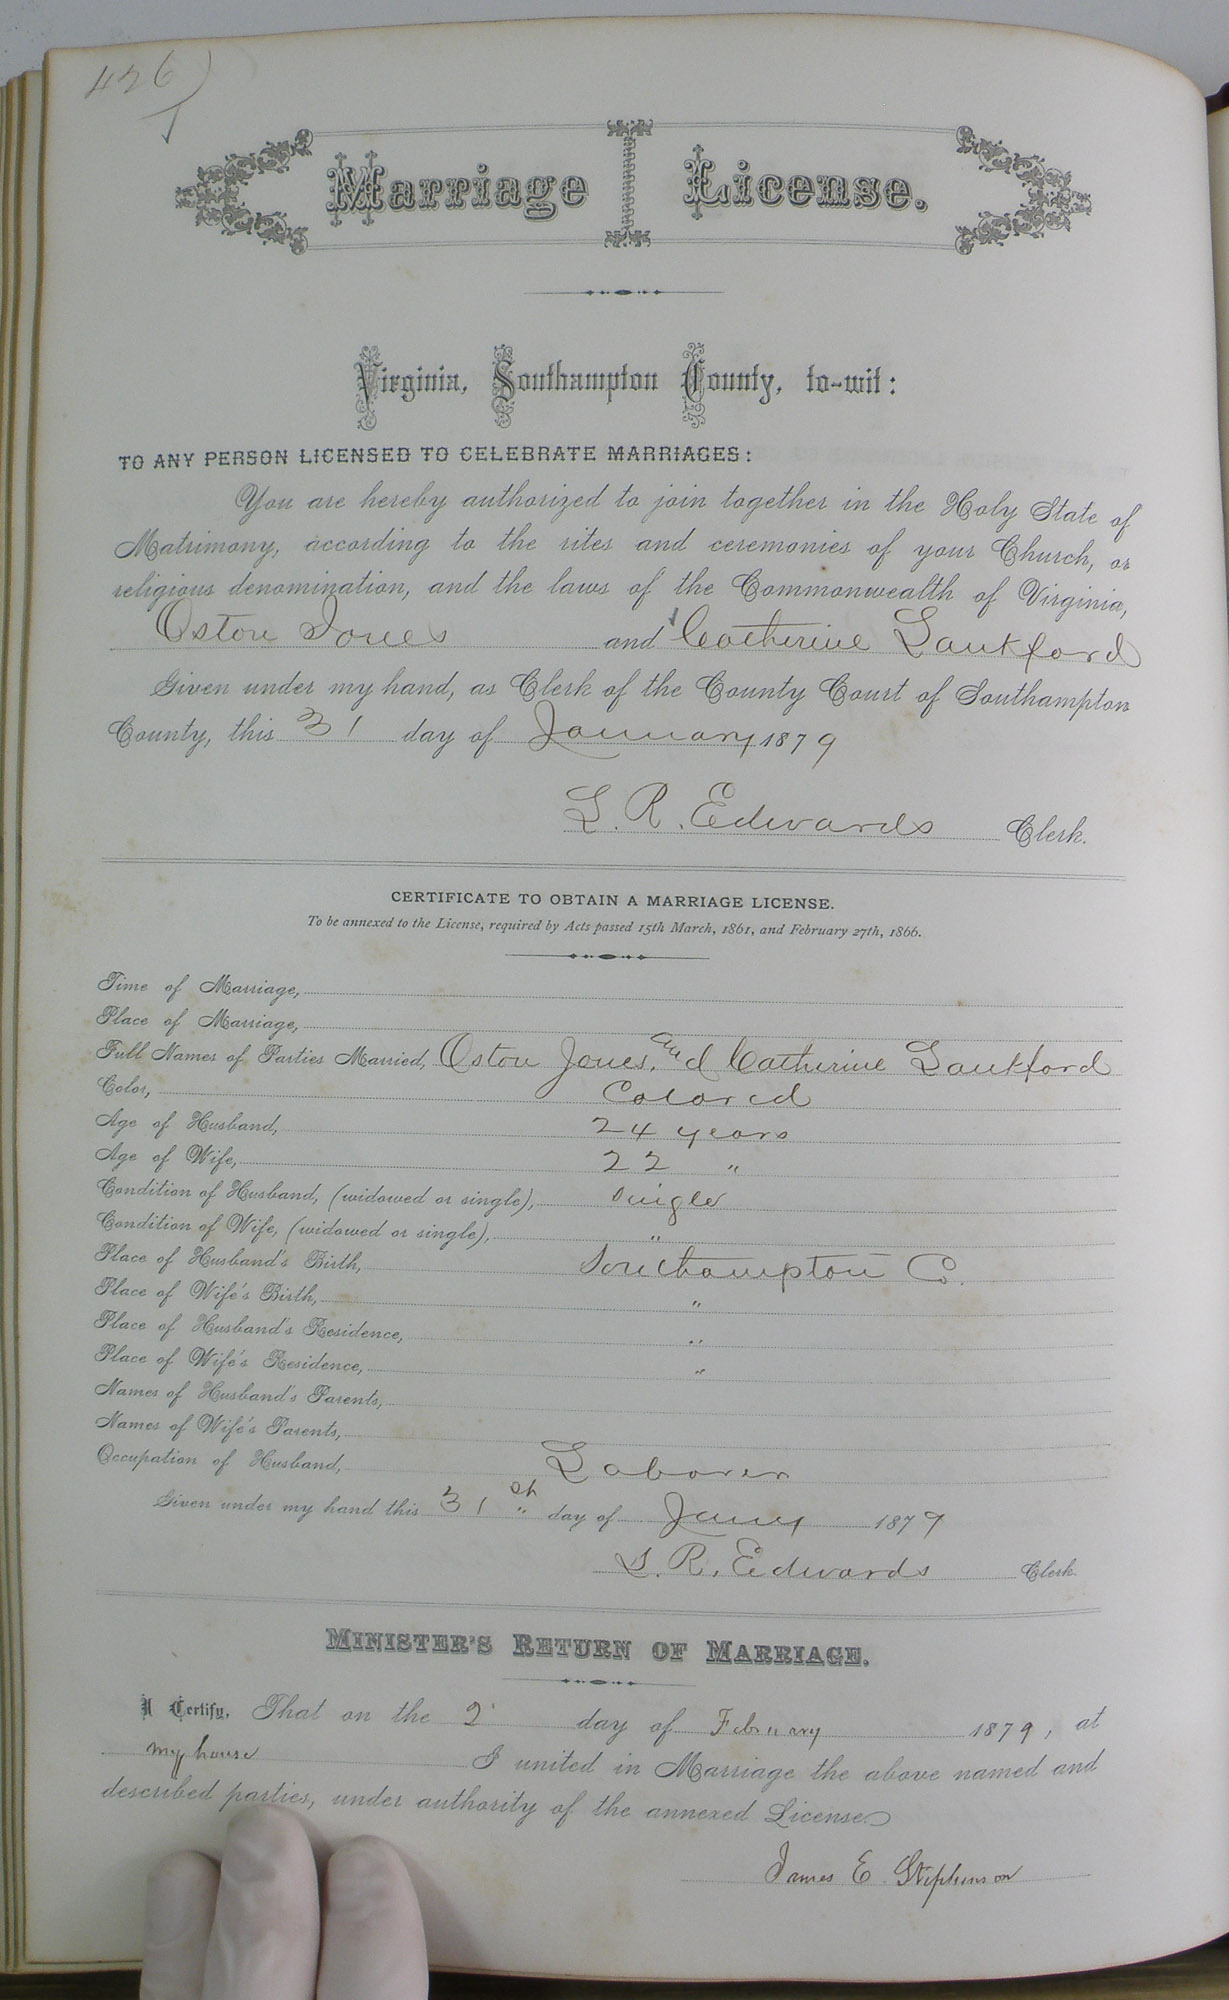 426
Marriage License.
Virginia, Southampton County, to-wit:
TO ANY PERSON LICENSED TO CELEBRATE MARRIAGES:
You are hereby authorized to join together in the Holy State of
Matrimony, according to the rites and ceremonies of your Church, or
religious denomination, and the laws of the Commonwealth of Virginia,
Oston Jones and Catherine Lankford
Given under my hand, as Clerk of the County Court of Southampton
County, this 31 day of January 1879
L. R. Edwards Clerk.
CERTIFICATE TO OBTAIN A MARRIAGE LICENSE.
To be annexed to the License, required by Acts passed 15th March, 1861, and February 27th, 1866.
Time of Marriage,
Place of Marriage,
Full Names of Parties Married, Oston Jones, and Catherine Lankford
Color, Colored
Age of Husband, 24 years
Age of Wife, 22 "
Condition of Husband, (widowed or single), Single
Condition of Wife, (widowed or single), "
Place of Husband's Birth, Southampton Co.
Place of Wife's Birth, "
Place of Husband's Residence, "
Place of Wife's Residence, "
Names of Husband's Parents,
Names of Wife's Parents,
Occupation of Husband, Laborer
Given under my hand this 31st day of Jany 1879
L. R. Edwards Clerk
MINISTER'S RETURN OF MARRIAGE.
I Certify, That on the 2 day of February 1879, at
my house I united in Marriage the above named and
described parties, under authority of the annexed License.
James E Stephenson